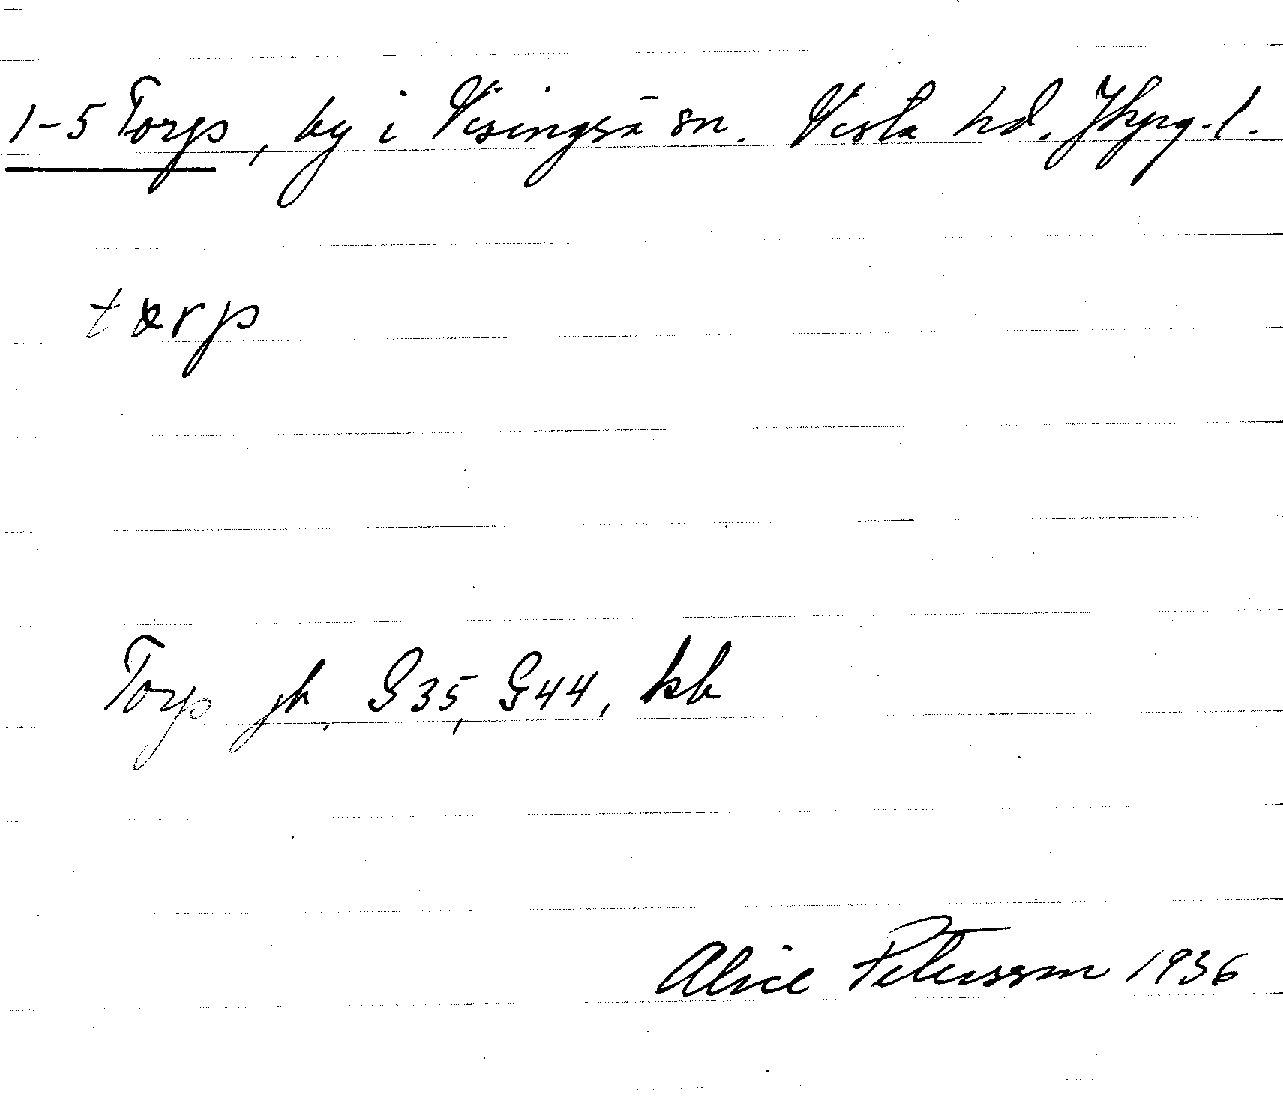 1-5 Torp, by i Visingsö sn. Vista hd. Jkpg. l.
tærp
Torp jb, G35, G44, kb
Alice Petersson 1936